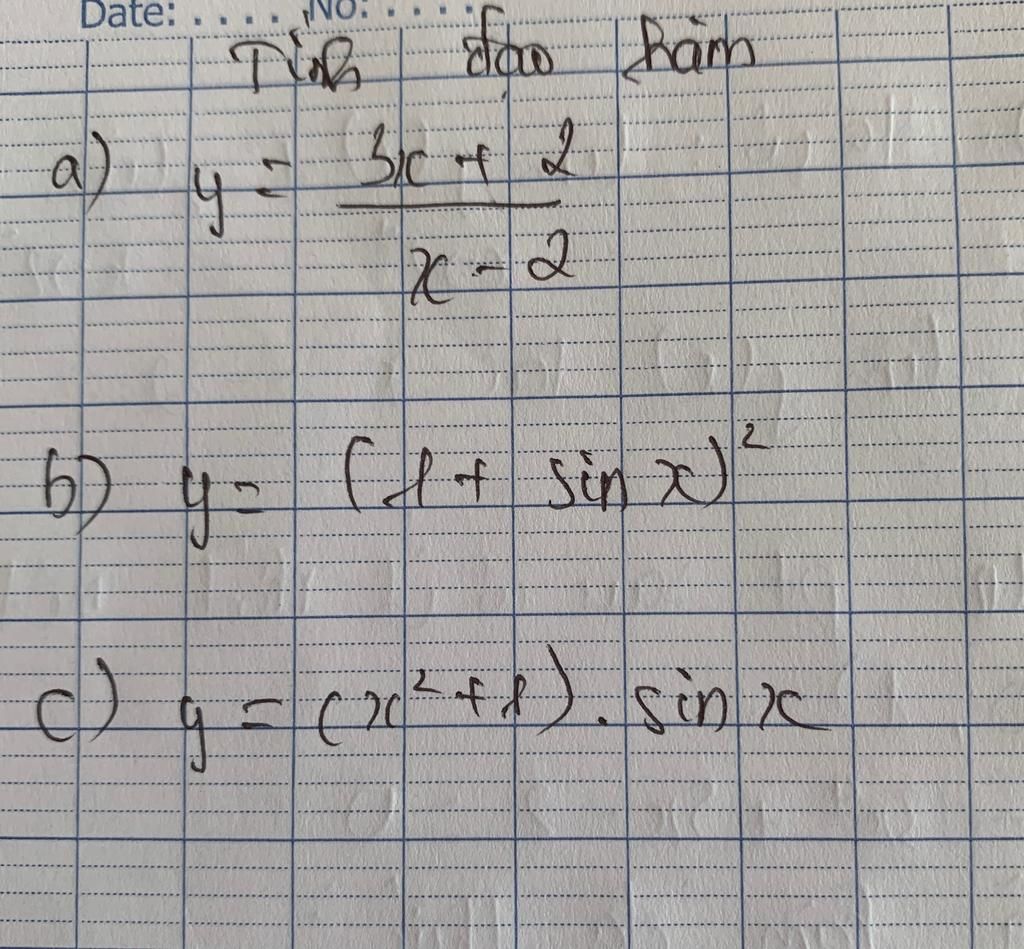 Date: . . . . . No: . . . . .
Tính đạo hàm
a) y = \frac{3x + 2}{x - 2}
b) y = (1 + sin x)²
c) y = (x² + 1) . sin x